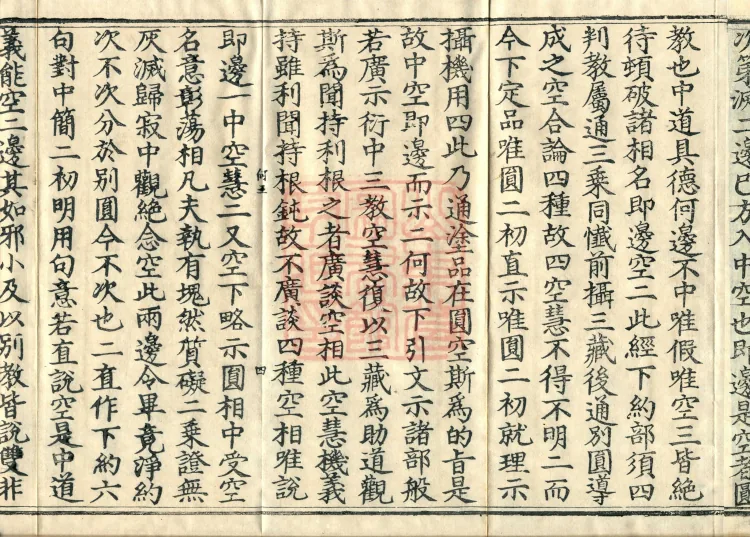 次第滅二邊已方入中空也即邊是空者圓
教也中道具德何邊不中唯假唯空三皆絶
待頓破諸相名即邊空二此經下約部須四
判教屬通三乘同懺前攝三藏後通別圓導
成之空合論四種故四空慧不得不明二而
今下定品唯圓二初直示唯圓二初就理示
攝機用四此乃通塗品在圓空斯爲的旨是
故中空即邊而示二何故下引文示諸部般
若廣示衍中三教空慧復以三藏爲助道觀
斯爲聞持利根之者廣談空相此空慧機義
持雖利聞持根鈍故不廣談四種空相唯說
即邊一中空慧二又空下略示圓相中受空
名意彰蕩相凡夫執有塊然質礙二乘證無
灰滅歸寂中觀絶念空此兩邊令畢竟淨約
次不次分於別圓今不次也二直作下約六
句對中簡二初明用句意若直說空是中道
義能空二邊其如邪小及以別教皆說雙非
何五
四